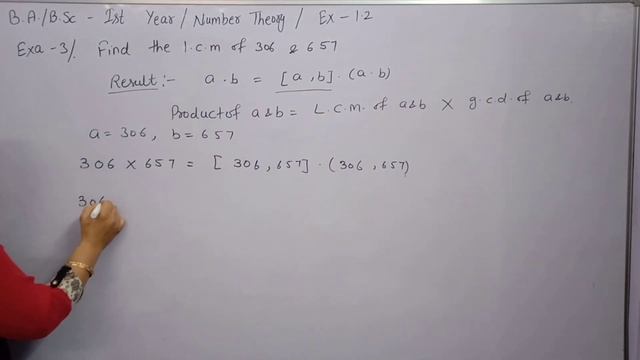 B.A./B.Sc - Ist Year / Number Theory / Ex - 1.2
Exa - 3/. Find the l.c.m of 306 & 657
Result :- a . b = [a, b] . (a . b)
Product of a & b = L.c.m. of a & b × g.c.d. of a & b.
a = 306, b = 657
306 × 657 = [306, 657] . (306, 657)
306